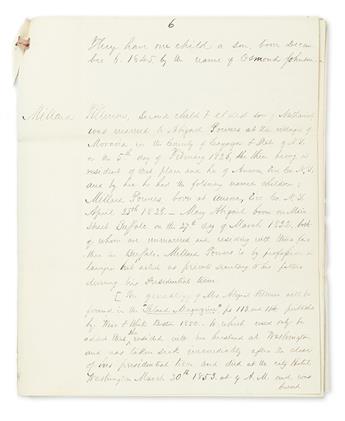 6
They have one child a son, born Decem
ber 6. 1845 by the name of Esmond Johnson
Millard Fillmore, Second child & eldest son of Nathaniel
was married to Abigail Powers at the village of
Moravia in the County of Cayuga & State of N.Y.
on the 5th day of February 1826, she then being a
resident of that place and he of Aurora, Erie Co. N.Y.
and by her he has the following named children;
Millard Powers, born at Aurora, Erie Co. N.Y.
April 25th 1828 - Mary Abigail born on Main
Street Buffalo on the 27th day of March 1832, both
of whom are unmarried and residing with their fa-
ther in Buffalo. Millard Powers is by profession a
lawyer but acted as private secretary to his father
during his Presidential term
[The genealogy of Mrs Abigail Fillmore will be
found in the "Leland Magazine" ps 113 and 114 publish
by Wier & White Boston 1850. to which need only be
added that she resided with her husband at Washington
and was taken sick immediately after the close
of his presidential term and died at the City Hotel
Washington March 30th 1853. at 9 A.M. and was
buried